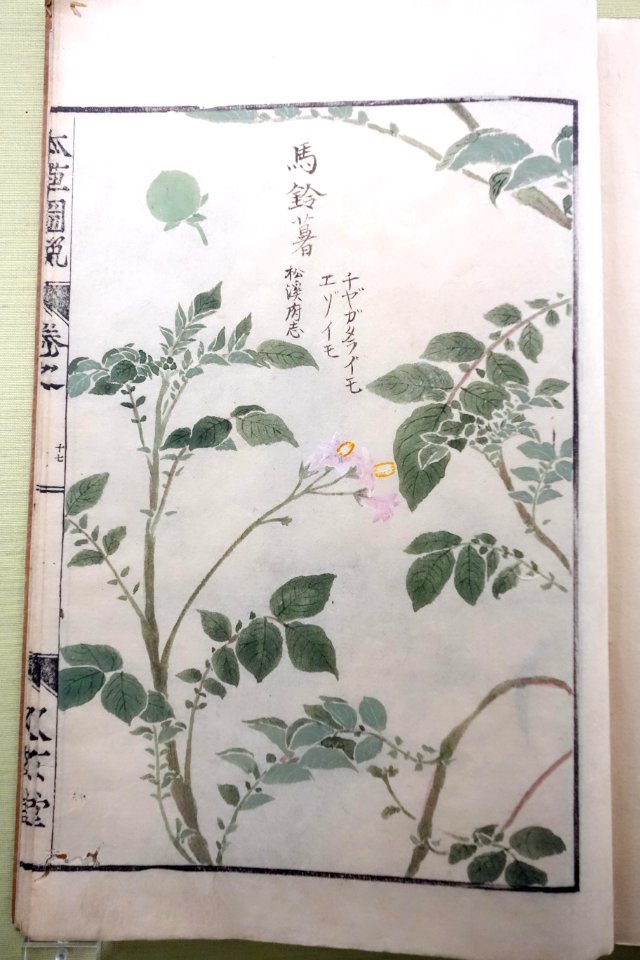 馬鈴薯
松溪府志
チヤガタライモ
エゾイモ
本草圖説
十七